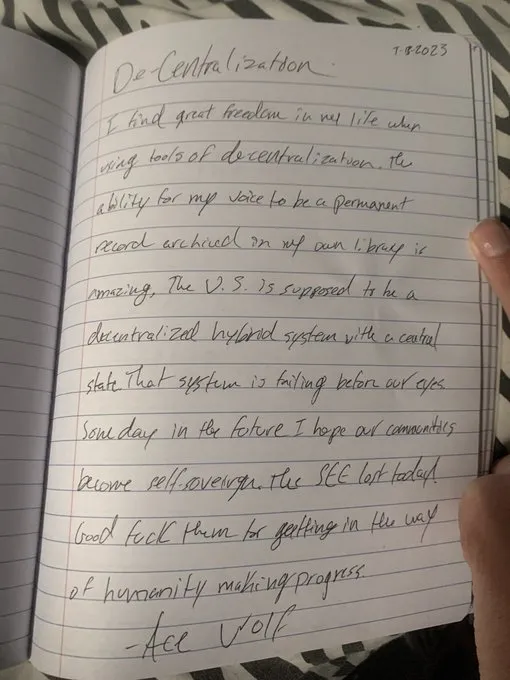 7-13-2023
De-Centralization.
I find great freedom in my life when
using tools of decentralization. The
ability for my voice to be a permanent
record archived in my own library is
amazing. The U.S. is supposed to be a
decentralized hybrid system with a central
state. That system is failing before our eyes.
Some day in the future I hope our communities
become self-soveirgn. The SEC lost today!
Good fuck them for getting in the way
of humanity making progress.
-Ace Wolf